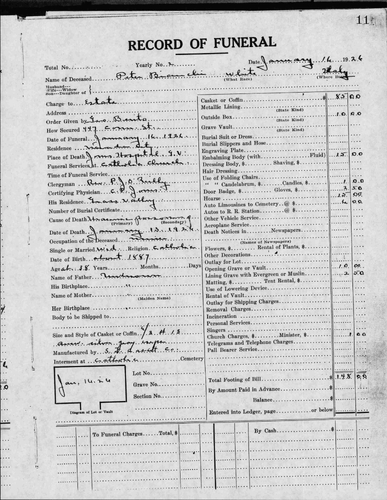 11
RECORD OF FUNERAL
Total No. Yearly No. Date January 16, 1926
Name of Deceased Peter White Italy
(What Race) (Where Born)
Husband—
Wife—Widow
Son—Daughter of
Charge to Estate
Address
Order given by Geo.
How Secured
Date of Funeral January 16, 1926
Residence
Place of Death Jones Hospital, G.V.
Funeral Services at Catholic Church
Time of Funeral Service
Clergyman Rev. P.J.O'Reilly
Certifying Physician Jones
His Residence Grass Valley
Number of Burial Certificate
Cause of Death
(Primary) (Secondary)
Date of Death January 13, 1926
Occupation of the Deceased Miner
Single or Married Religion Catholic
Date of Birth about 1887
Aged 38 Years Months Days
Name of Father Unknown
His Birthplace
Name of Mother
(Maiden Name)
Her Birthplace
Body to be Shipped to
Size and Style of Casket or Coffin
silver gray
Manufactured by
Interment at Catholic Cemetery
Jan. 16-26
Lot No.
Grave No.
Section No.
Diagram of Lot or Vault
Casket or Coffin 85 00
(State Kind)
Metallic Lining
Outside Box 10 00
(State Kind)
Grave Vault
(State Kind)
Burial Suit or Dress
Burial Slippers and Hose
Engraving Plate
Embalming Body (with Fluid) 15 00
Dressing Body, $ Shaving, $
Hair Dressing
Use of Folding Chairs
" " Candelabrum, $ Candles, $ 1 00
Door Badge, $ Gloves, $ 2 50
Hearse 15 00
Auto Limousines to Cemetery @ $
Autos to R. R. Station @ $
Other Vehicle Service
Aeroplane Service
Death Notices in Newspapers
(Names of Newspapers)
Flowers, $ Rental of Plants, $
Other Decorations
Outlay for Lot
Opening Grave or Vault 10 00
Lining Grave with Evergreen or Muslin 2 50
Matting, $ Tent Rental, $
Use of Lowering Device
Rental of Vault
Outlay for Shipping Charges
Removal Charges
Incineration
Personal Services
Singers
Church Charges, $ Minister, $ 1 00
Telegrams and Telephone Charges
Pall Bearer Service
Total Footing of Bill $ 148 00
By Amount Paid in Advance $
Balance $
Entered into Ledger, page or below $
To Funeral Charges Total $
By Cash $